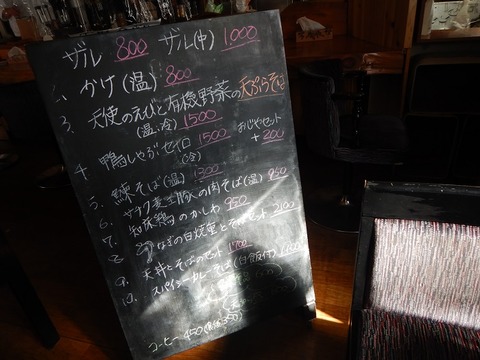 ザル 800 ザル(中) 1,000
かけ(温) 800
3. 天使のえびと有機野菜の天ぷらそば
(温、冷) 1500
4. 鴨しゃぶセイロ 1500 おじやセット
(冷) +200
5. 鰊そば(温) 1300
6. サチク麦王豚の肉そば(温) 950
7. 知床鶏のかしわ 950
8. うなぎの白焼重とそばセット 2100
9. 天丼とそばのセット 1700
10. スパイシーカレーそば(白飯付)
コーヒー 450